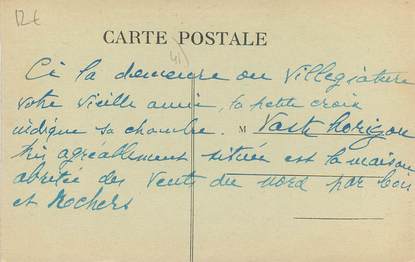 12€
CARTE POSTALE
41)
Ci la demeure ou villegiature
votre vieille amie, la petite croix
indique sa chambre. M Vast horizon
très agréablement située est la maison
abritée des vents du nord par bois
et Rochers